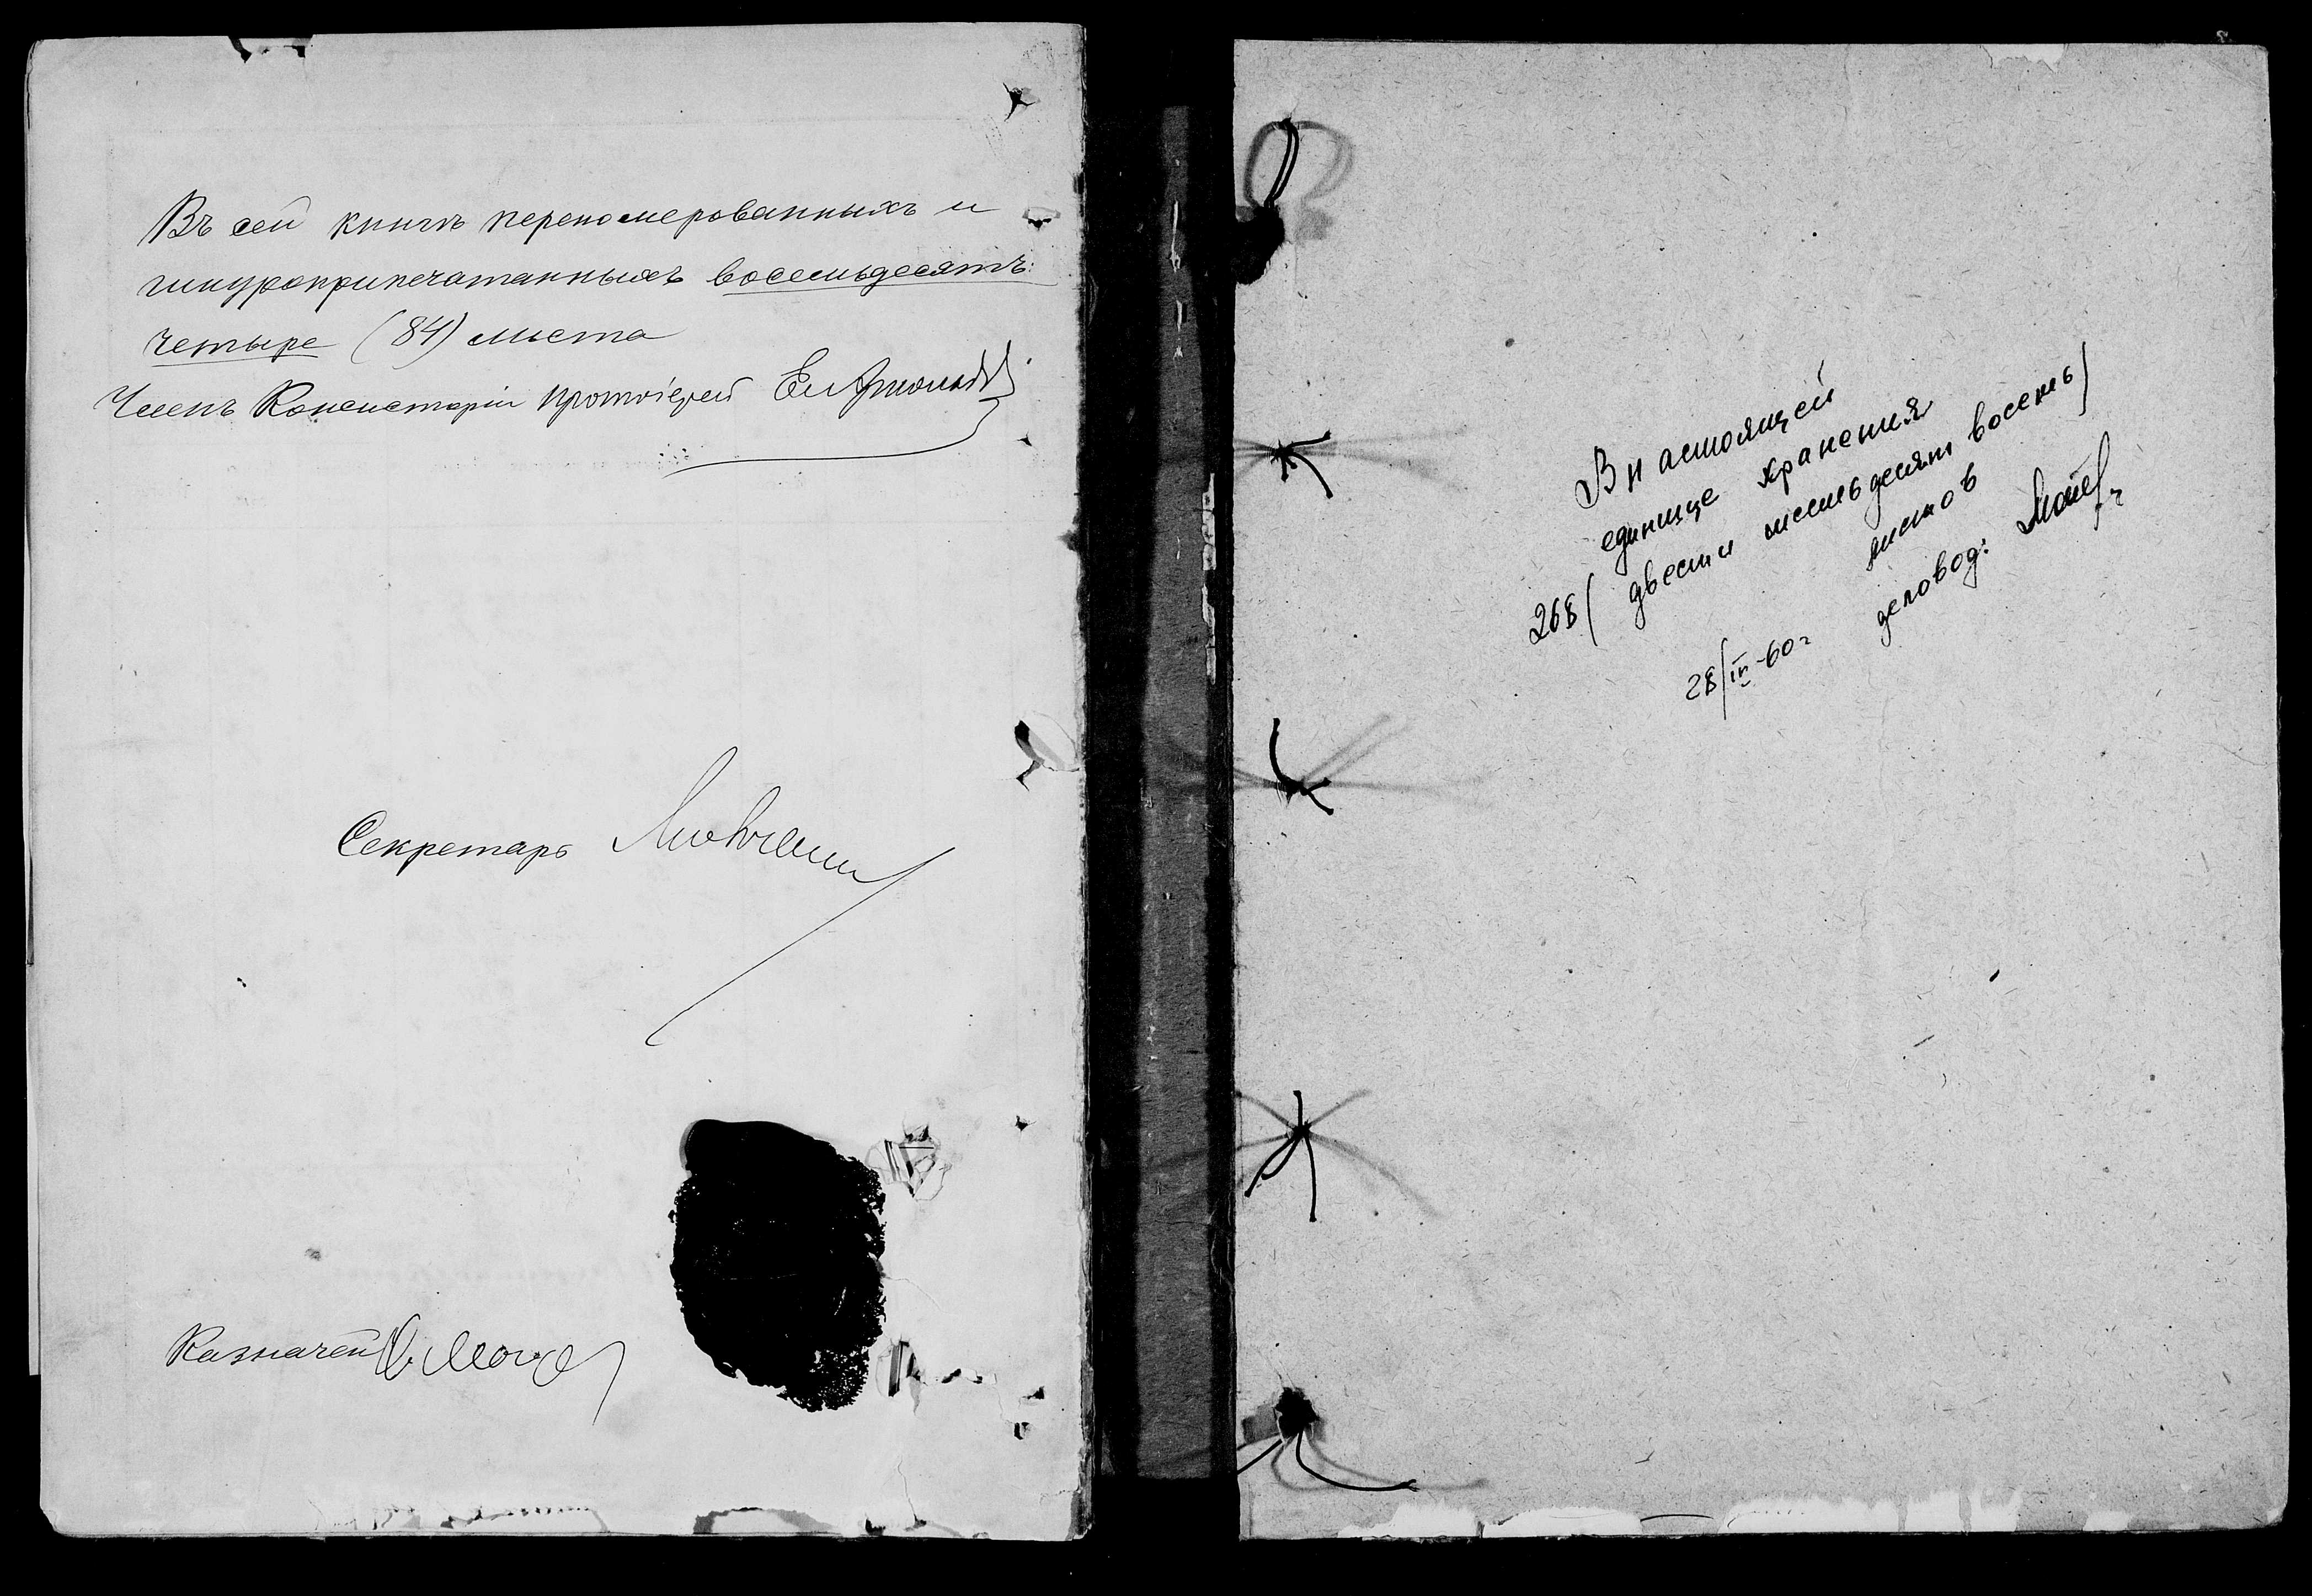 Въ сей книгѣ переномерованныхъ и
шнуроприпечатанныхъ восемьдесятъ
четыре (84) листа
Членъ Консисторіи протоіерей
Секретарь
Казначей
В настоящей
единице хранения
268 (двести шестьдесят восемь)
листов
28/IV-60г деловод: